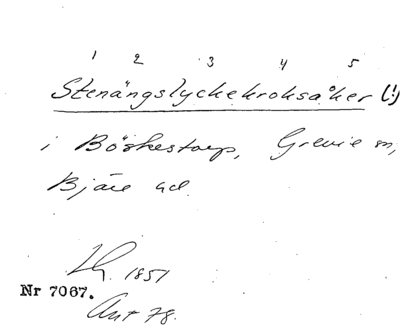 1 2 3 4 5
Stenängslyckekroksåker (!)
i Böskestorp, Grevie sn,
Bjäre hd.
Lh. 1851
Nr 7067.
Ant 78.